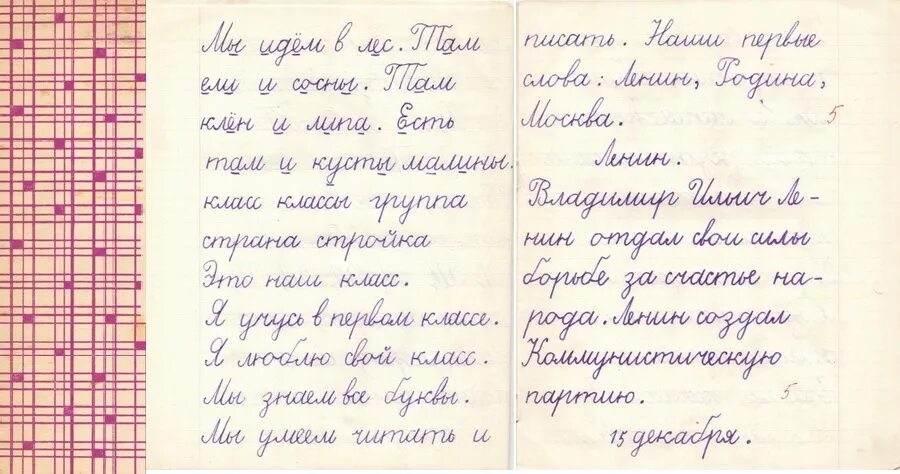 Мы идём в лес. Там
ели и сосны. Там
клён и липа. Есть
там и кусты малины.
класс классы группа
страна стройка
Это наш класс.
Я учусь в первом классе.
Я люблю свой класс.
Мы знаем все буквы.
Мы умеем читать и
писать. Наши первые
слова: Ленин, Родина,
Москва. 5
Ленин.
Владимир Ильич Ле-
нин отдал свои силы
борьбе за счастье на-
рода. Ленин создал
Коммунистическую
партию. 5
15 декабря.